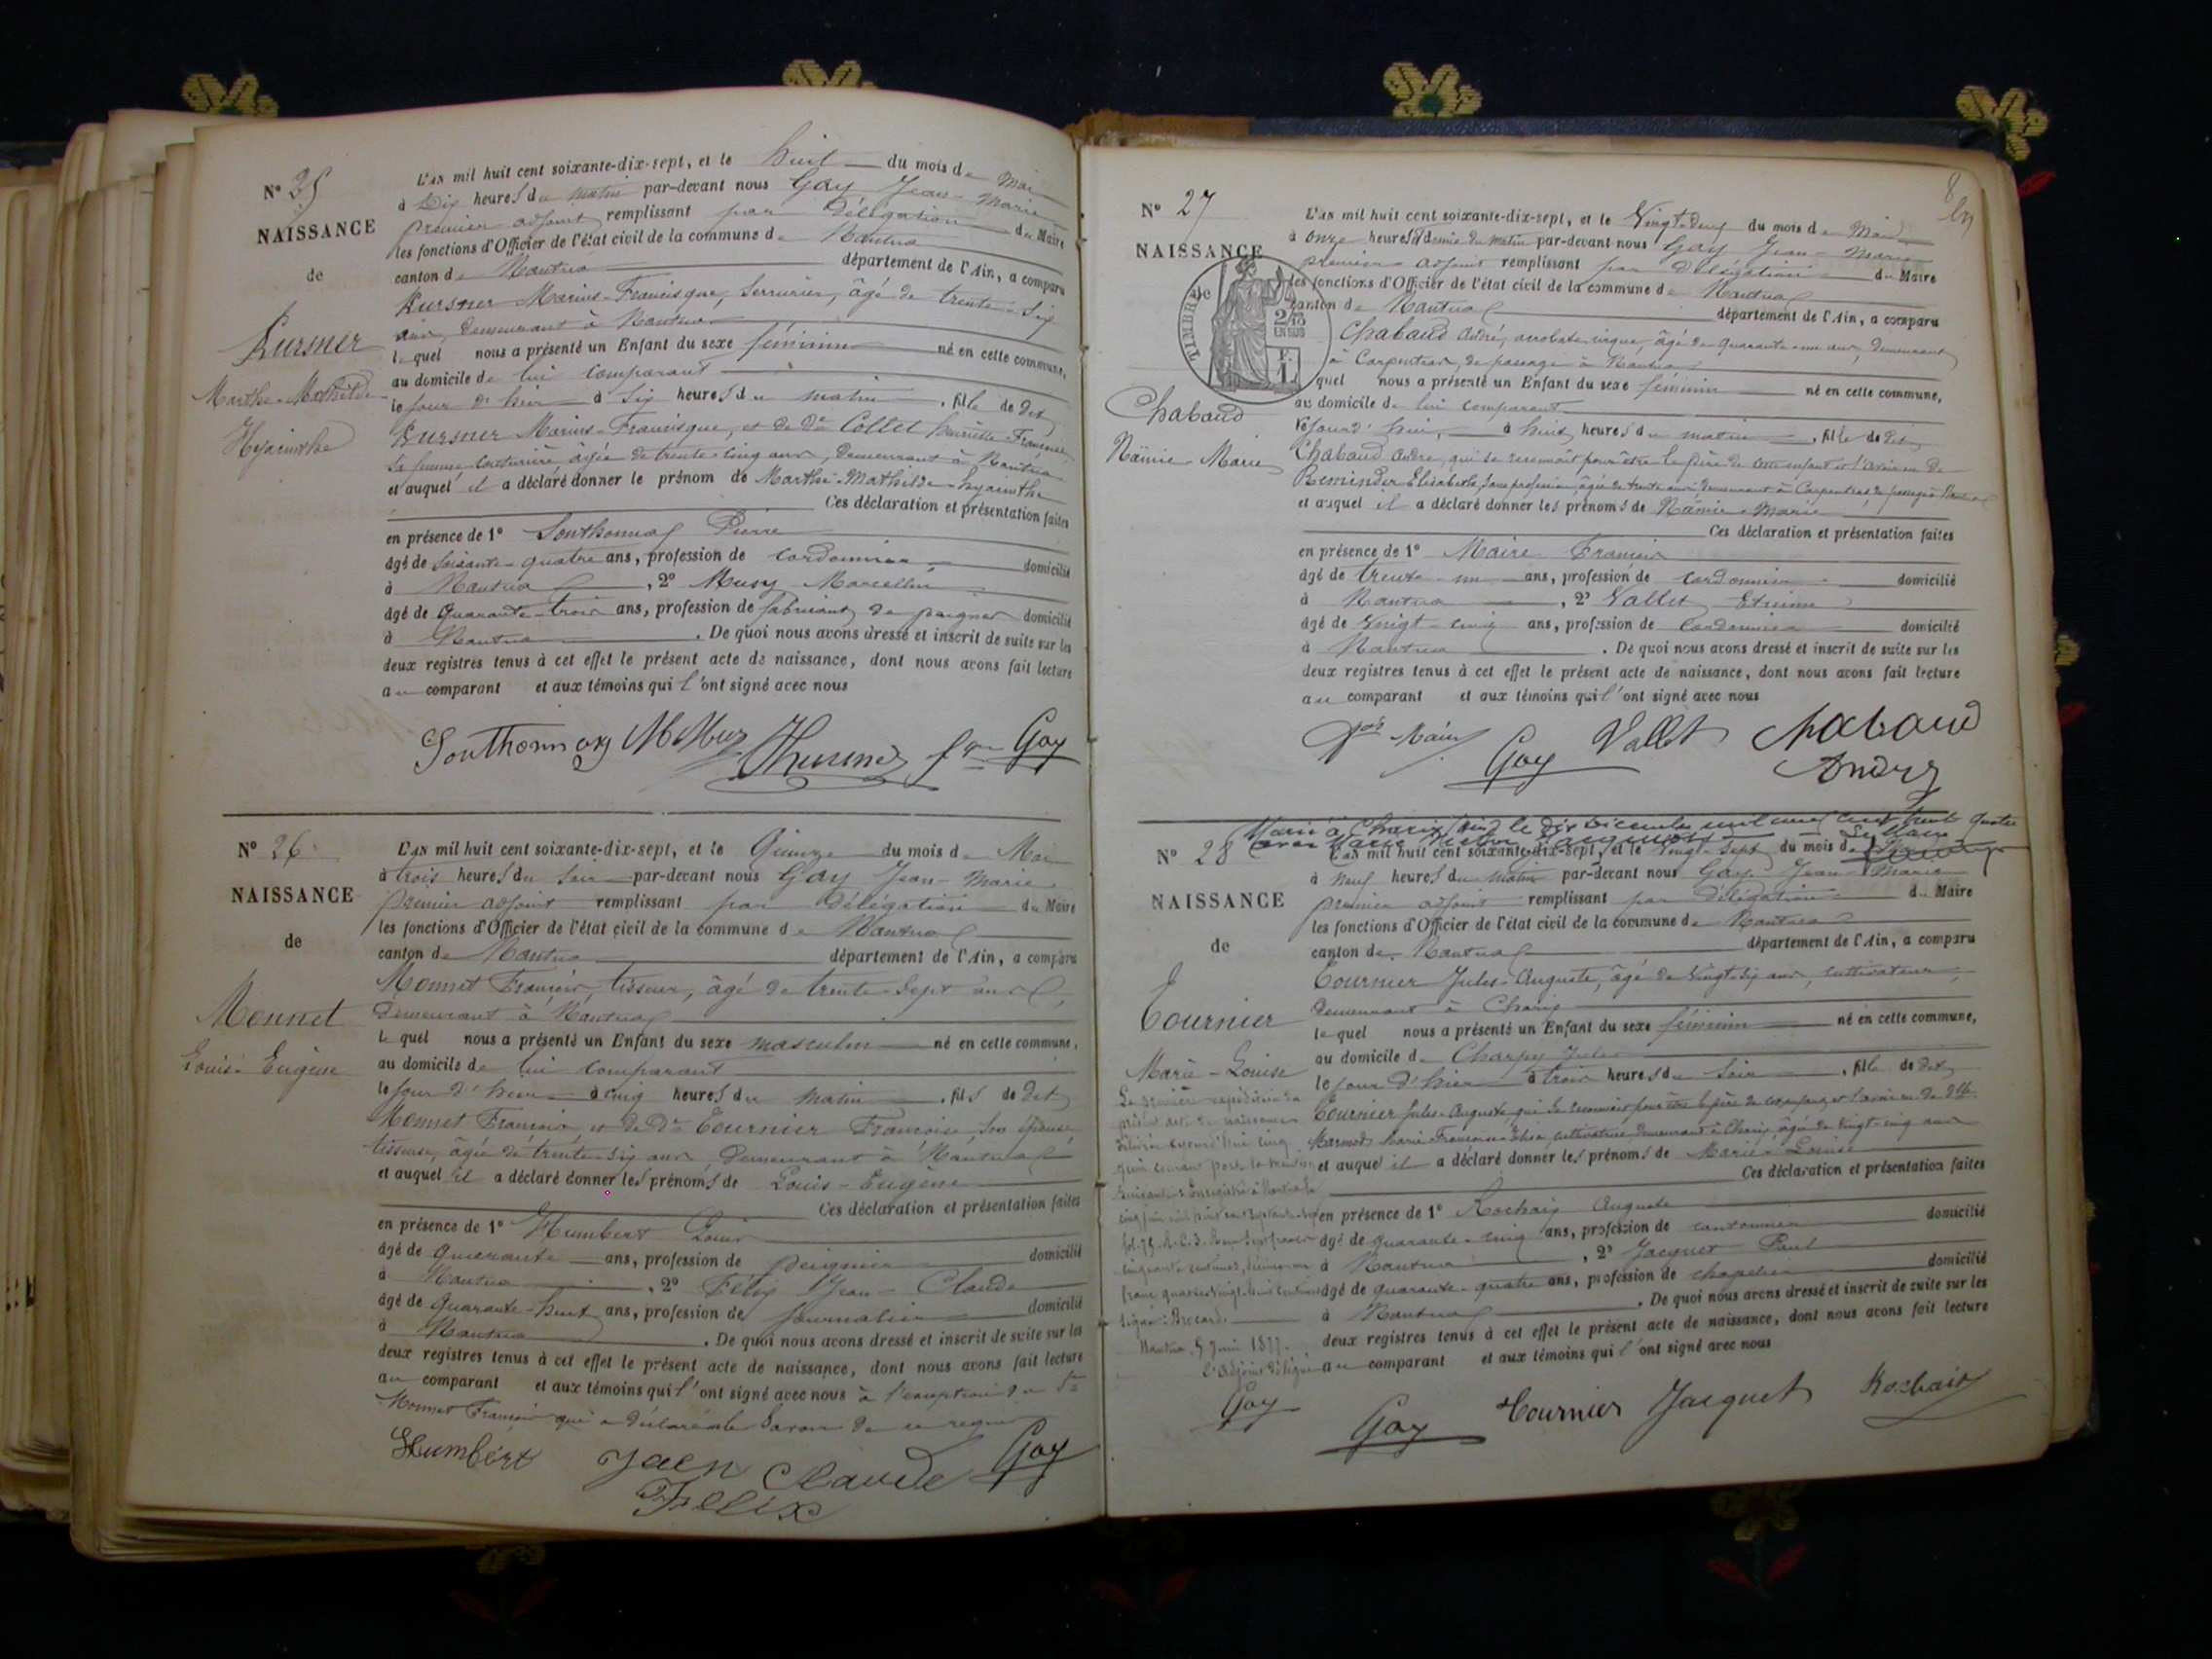 N° 25
NAISSANCE
de
Kursner
Marthe-Mathilde
Hyacinthe
L'AN mil huit cent soixante-dix-sept, et le huit du mois de Mai
à Dix heures du matin par-devant nous Gay Jean-Marie
premier adjoint remplissant par Délégation du Maire
les fonctions d'Officier de l'état civil de la commune de Nantua
canton de Nantua département de l'Ain, a comparu
Kursner Marius-Francisque, Serrurier, âgé de trente-six
ans, demeurant à Nantua
lequel nous a présenté un Enfant du sexe féminin né en cette commune,
au domicile de lui comparant
le jour d'hier à six heures du matin, fille de dit
Kursner Marius-Francisque, et de De Collet
sa femme couturière âgée de trente-cinq ans, demeurant à Nantua
et auquel il a déclaré donner le prénom de Marthe-Mathilde-hyacinthe
Ces déclaration et présentation faites
en présence de 1° Southonnax Pierre
âgé de soixante-quatre ans, profession de cordonnier domicilié
à Nantua, 2° Musy Marcellin
âgé de quarante-trois ans, profession de fabricant de peignes domicilié
à Nantua. De quoi nous avons dressé et inscrit de suite sur les
deux registres tenus à cet effet le présent acte de naissance, dont nous avons fait lecture
au comparant et aux témoins qui l'ont signé avec nous
Southonnax Gay
N° 26
NAISSANCE
de
Monnet
Louis-Eugène
L'AN mil huit cent soixante-dix-sept, et le Quinze du mois de Mai
à trois heures du soir par-devant nous Gay Jean-Marie
premier adjoint remplissant par Délégation du Maire
les fonctions d'Officier de l'état civil de la commune de Nantua
canton de Nantua département de l'Ain, a comparu
Monnet François, tisseur, âgé de trente-sept ans,
demeurant à Nantua
lequel nous a présenté un Enfant du sexe masculin né en cette commune,
au domicile de lui comparant
le jour d'hier à cinq heures du matin, fils de dit
Monnet François et de De Tournier Françoise, son épouse,
tisseuse, âgée de trente-six ans demeurant à Nantua
et auquel il a déclaré donner les prénoms de Louis-Eugène
Ces déclaration et présentation faites
en présence de 1° Humbert Louis
âgé de quarante ans, profession de peignier domicilié
à Nantua, 2° Félix Jean-Claude
âgé de quarante-huit ans, profession de journalier domicilié
à Nantua. De quoi nous avons dressé et inscrit de suite sur les
deux registres tenus à cet effet le présent acte de naissance, dont nous avons fait lecture
au comparant et aux témoins qui l'ont signé avec nous à l'exception du Sr
Monnet François qui a déclaré ne le savoir de ce requis
Humbert Jaen Claude Gay
Felix
8
N° 27
NAISSANCE
de
TIMBRE
Chabaud
Naïmie-Marie
L'AN mil huit cent soixante-dix-sept, et le Vingt-deux du mois de Mai
à onze heures et demie du matin par-devant nous Gay Jean-Marie
premier adjoint remplissant par Délégation du Maire
les fonctions d'Officier de l'état civil de la commune de Nantua
canton de Nantua département de l'Ain, a comparu
Chabaud André, acrobate, âgé de quarante-un ans, demeurant
à Carpentras, de passage à Nantua
quel nous a présenté un Enfant du sexe féminin né en cette commune,
au domicile de lui comparant
le jour d'hui, à huit heures du matin, fille de dit
Chabaud André, qui se reconnait pour être le père de cet enfant et l'avoir eu de
Reminder Elisabeth, sans profession, âgée de trente ans demeurant à Carpentras de passage à Nantua
et auquel il a déclaré donner les prénoms de Naïmie-Marie
Ces déclaration et présentation faites
en présence de 1° Maire François
âgé de trente-un ans, profession de cordonnier domicilié
à Nantua, 2° Vallet Etienne
âgé de vingt-cinq ans, profession de cordonnier domicilié
à Nantua. De quoi nous avons dressé et inscrit de suite sur les
deux registres tenus à cet effet le présent acte de naissance, dont nous avons fait lecture
au comparant et aux témoins qui l'ont signé avec nous
Maire Gay Vallet Chabaud
André
Marié à Charix (Ain) le dix Décembre mil neuf cent trente quatre
avec Marie Le Maire
N° 28
NAISSANCE
de
Tournier
Marie-Louise
L'AN mil huit cent soixante-dix-sept, et le vingt-sept du mois de Mai
à neuf heures du matin par-devant nous Gay Jean-Marie
premier adjoint remplissant par délégation du Maire
les fonctions d'Officier de l'état civil de la commune de Nantua
canton de Nantua département de l'Ain, a comparu
Tournier Jules-Auguste, âgé de vingt-six ans, cultivateur,
demeurant à Charix
lequel nous a présenté un Enfant du sexe féminin né en cette commune,
au domicile de Charpy Jules
le jour d'hier à trois heures du soir, fille de dit
Tournier Jules-Auguste, qui se reconnait pour être le père de cet enfant et l'avoir eu de Dlle
Marmet Marie Françoise-Elisa, cultivatrice demeurant à Charix, âgée de vingt-cinq ans
et auquel il a déclaré donner les prénoms de Marie-Louise
Ces déclaration et présentation faites
en présence de 1° Rochaix Auguste
âgé de quarante-cinq ans, profession de cantonnier domicilié
à Nantua, 2° Jacquet Paul
âgé de quarante-quatre ans, profession de chapelier domicilié
à Nantua. De quoi nous avons dressé et inscrit de suite sur les
deux registres tenus à cet effet le présent acte de naissance, dont nous avons fait lecture
au comparant et aux témoins qui l'ont signé avec nous
La première expédition du
présent acte de naissance
Nantua, 5 Juin 1877.
l'Adjoint délégué
Gay
Gay Tournier Jacquet Rochaix